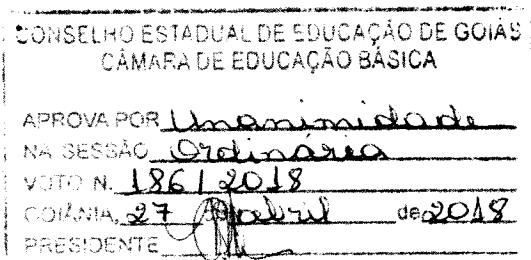 CONSELHO ESTADUAL DE EDUCAÇÃO DE GOIÁS
CÂMARA DE EDUCAÇÃO BÁSICA
APROVA POR Unanimidade
NA SESSÃO Ordinárea
VOTO N. 186 / 2018
GOIÂNIA, 27 abril de 2018
PRESIDENTE